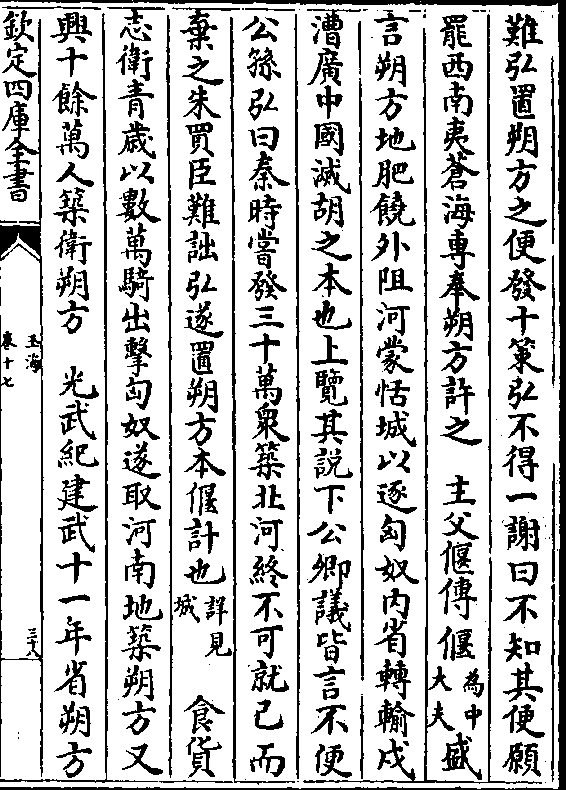 難弘置朔方之便發十策弘不得一謝曰不知其便願
罷西南夷蒼海專奉朔方許之　主父偃傳偃為中大夫盛
言朔方地肥饒外阻河蒙恬城以逐匈奴内省轉輸戍
漕廣中國滅胡之本也上覽其説下公卿議皆言不便
公孫弘曰秦時嘗發三十萬衆築北河終不可就已而
棄之朱買臣難詘弘遂置朔方本偃計也詳見城　食貨
志衛青歳以數萬騎出擊匈奴遂取河南地築朔方又
興十餘萬人築衛朔方　光武紀建武十一年省朔方
欽定四庫全書
玉海
卷十七
三十八